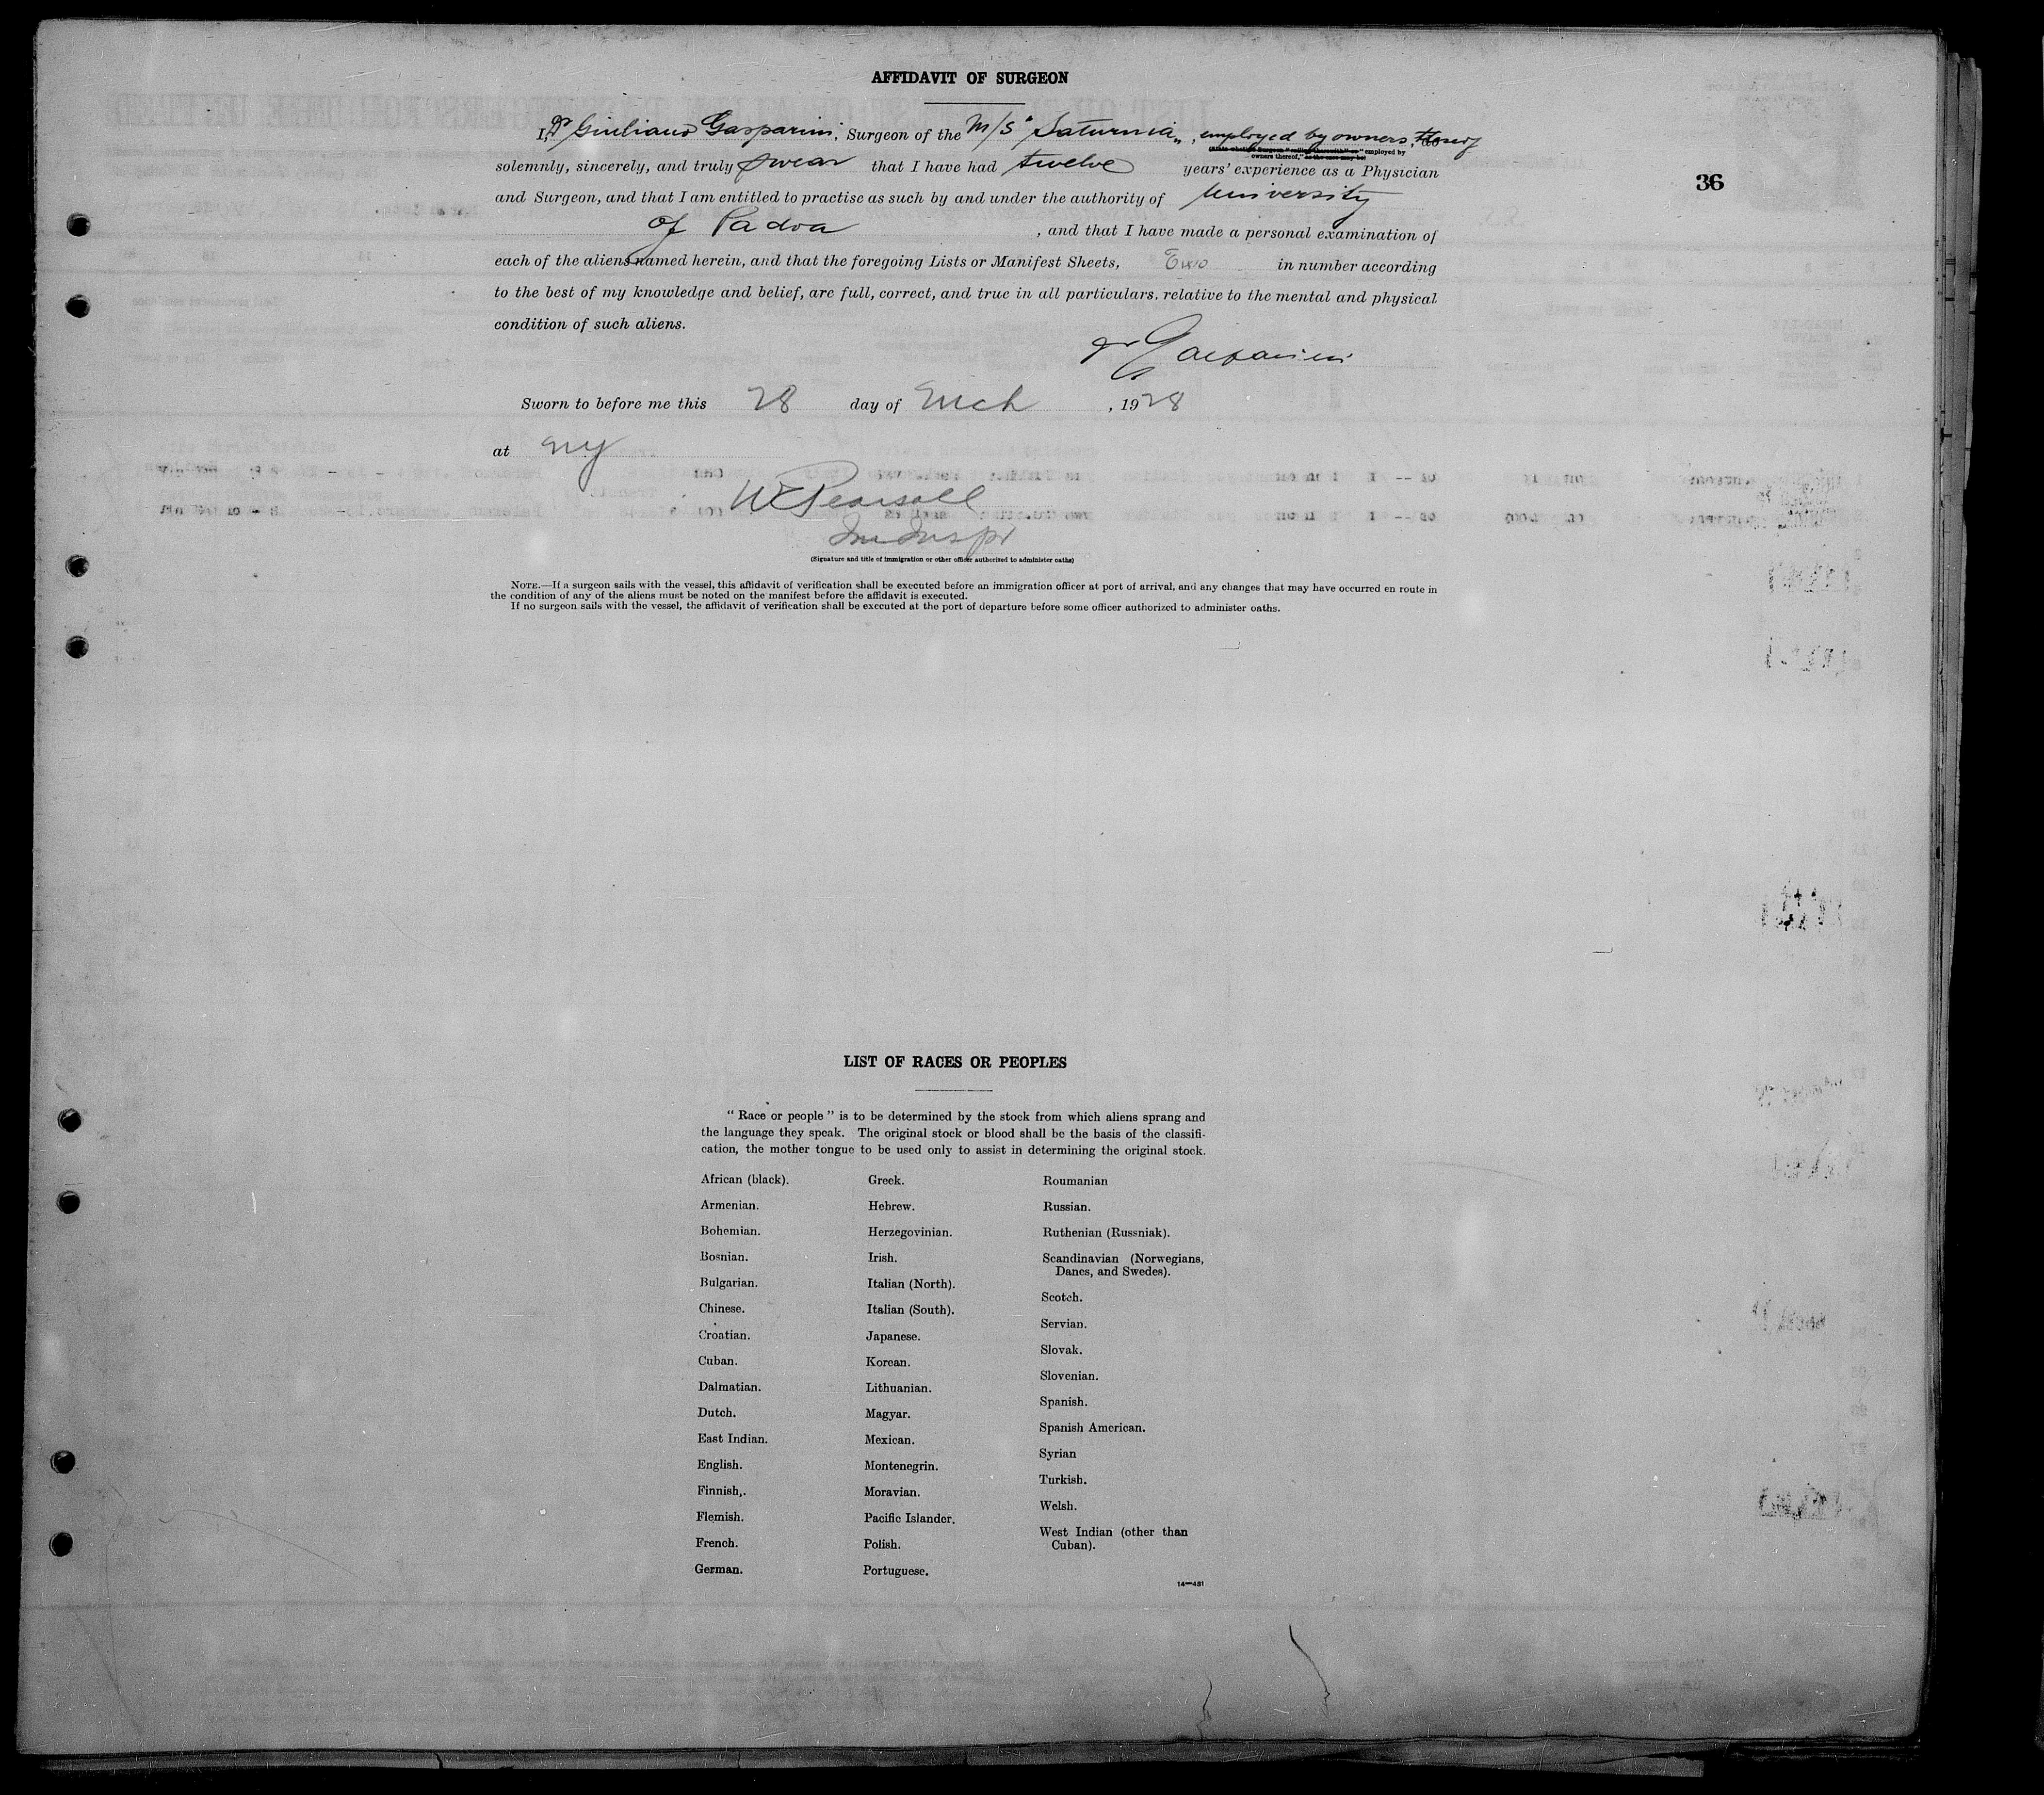 AFFIDAVIT OF SURGEON
I, Dr Giuliano Gasparini, Surgeon of the M/S "Saturnia", employed by owners,
(State whether Surgeon "sailing therewith" or "employed by
owners thereof," as the case may be)
solemnly, sincerely, and truly swear that I have had twelve years' experience as a Physician
36
and Surgeon, and that I am entitled to practise as such by and under the authority of University
of Padva, and that I have made a personal examination of
each of the aliens named herein, and that the foregoing Lists or Manifest Sheets, Two in number according
to the best of my knowledge and belief, are full, correct, and true in all particulars, relative to the mental and physical
condition of such aliens.
Dr Gasparini
Sworn to before me this 28 day of Mch, 1928
at NY
W Pearsall
Im Inspr
(Signature and title of immigration or other officer authorized to administer oaths)
NOTE.—If a surgeon sails with the vessel, this affidavit of verification shall be executed before an immigration officer at port of arrival, and any changes that may have occurred en route in
the condition of any of the aliens must be noted on the manifest before the affidavit is executed.
If no surgeon sails with the vessel, the affidavit of verification shall be executed at the port of departure before some officer authorized to administer oaths.
LIST OF RACES OR PEOPLES
"Race or people" is to be determined by the stock from which aliens sprang and
the language they speak. The original stock or blood shall be the basis of the classifi-
cation, the mother tongue to be used only to assist in determining the original stock.
African (black).
Armenian.
Bohemian.
Bosnian.
Bulgarian.
Chinese.
Croatian.
Cuban.
Dalmatian.
Dutch.
East Indian.
English.
Finnish,.
Flemish.
French.
German.
Greek.
Hebrew.
Herzegovinian.
Irish.
Italian (North).
Italian (South).
Japanese.
Korean.
Lithuanian.
Magyar.
Mexican.
Montenegrin.
Moravian.
Pacific Islander.
Polish.
Portuguese.
Roumanian
Russian.
Ruthenian (Russniak).
Scandinavian (Norwegians,
Danes, and Swedes).
Scotch.
Servian.
Slovak.
Slovenian.
Spanish.
Spanish American.
Syrian
Turkish.
Welsh.
West Indian (other than
Cuban).
14—481